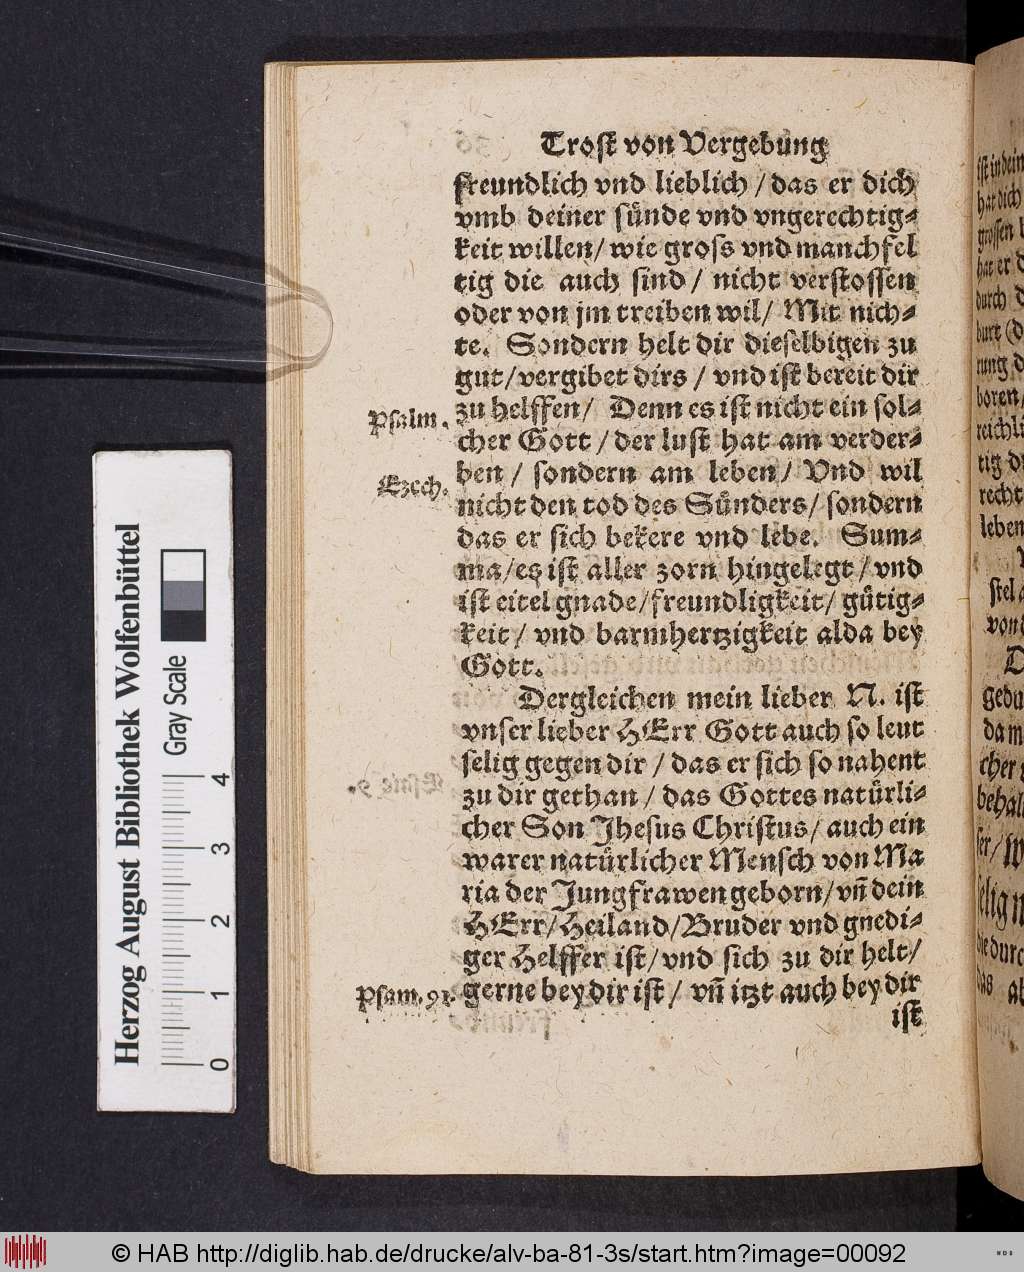 Trost von Vergebung
freundlich vnd lieblich / das er dich
vmb deiner sünde vnd vngerechtig⸗
keit willen / wie gross vnd manchfel
tig die auch sind / nicht verstossen
oder von jm treiben wil / Mit nich⸗
te. Sondern helt dir dieselbigen zu
gut / vergibet dirs / vnd ist bereit dir
Psalm.
zu helffen / Denn es ist nicht ein sol⸗
cher Gott / der lust hat am verder⸗
Ezech.
ben / sondern am leben / Vnd wil
nicht den tod des Sünders / sondern
das er sich bekere vnd lebe. Sum⸗
ma / es ist aller zorn hingelegt / vnd
ist eitel gnade / freundligkeit / gütig⸗
keit / vnd barmhertzigkeit alda bey
Gott.
Dergleichen mein lieber N. ist
vnser lieber HErr Gott auch so leut
selig gegen dir / das er sich so nahent
zu dir gethan / das Gottes natürli⸗
cher Son Jhesus Christus / auch ein
warer natürlicher Mensch von Ma
ria der Jungfrawen geborn / vñ dein
HErr / Heiland / Bruder vnd gnedi⸗
ger Helffer ist / vnd sich zu dir helt /
Psam. 91.
gerne bey dir ist / vñ itzt auch bey dir
ist
Herzog August Bibliothek Wolfenbüttel
Gray Scale
0 1 2 3 4
© HAB http://diglib.hab.de/drucke/alv-ba-81-3s/start.htm?image=00092